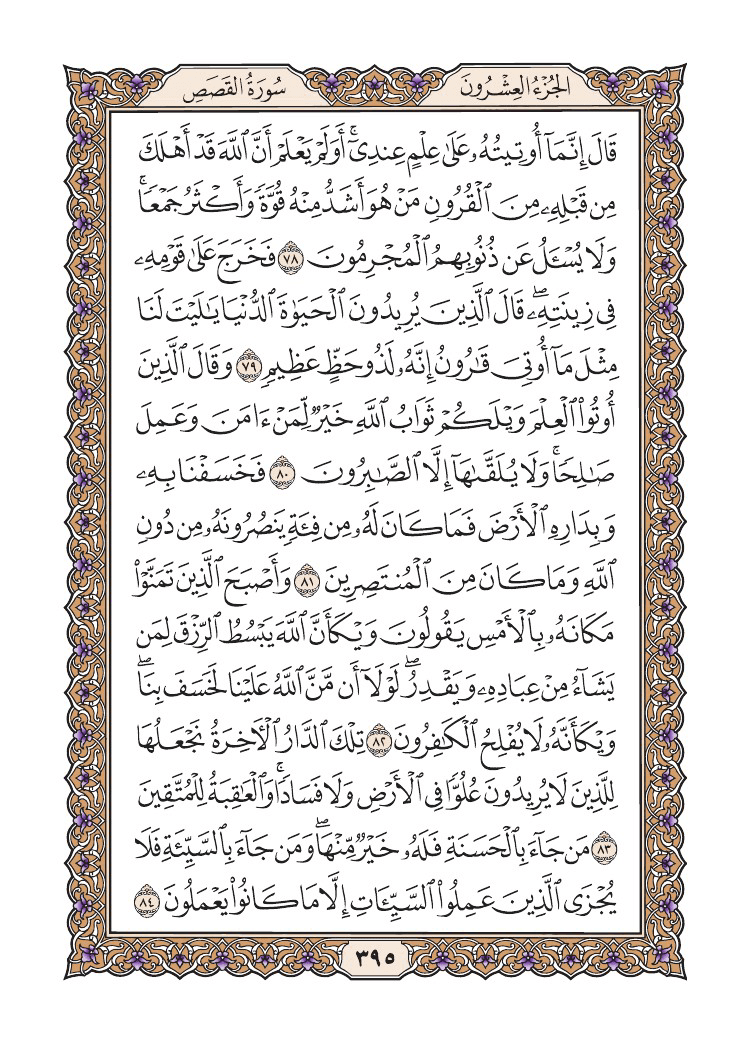 الجُزْءُ العِشْرُونَ
سُورَةُ القَصَصِ
قَالَ إِنَّمَآ أُوتِيتُهُۥ عَلَىٰ عِلْمٍ عِندِيٓۚ أَوَلَمْ يَعْلَمْ أَنَّ ٱللَّهَ قَدْ أَهْلَكَ
مِن قَبْلِهِۦ مِنَ ٱلْقُرُونِ مَنْ هُوَ أَشَدُّ مِنْهُ قُوَّةً وَأَكْثَرُ جَمْعًاۚ
وَلَا يُسْـَٔلُ عَن ذُنُوبِهِمُ ٱلْمُجْرِمُونَ ٧٨ فَخَرَجَ عَلَىٰ قَوْمِهِۦ
فِي زِينَتِهِۦۖ قَالَ ٱلَّذِينَ يُرِيدُونَ ٱلْحَيَوٰةَ ٱلدُّنْيَا يَٰلَيْتَ لَنَا
مِثْلَ مَآ أُوتِيَ قَٰرُونُ إِنَّهُۥ لَذُو حَظٍّ عَظِيمٍ ٧٩ وَقَالَ ٱلَّذِينَ
أُوتُوا۟ ٱلْعِلْمَ وَيْلَكُمْ ثَوَابُ ٱللَّهِ خَيْرٌ لِّمَنْ ءَامَنَ وَعَمِلَ
صَٰلِحًاۚ وَلَا يُلَقَّىٰهَآ إِلَّا ٱلصَّٰبِرُونَ ٨٠ فَخَسَفْنَا بِهِۦ
وَبِدَارِهِ ٱلْأَرْضَ فَمَا كَانَ لَهُۥ مِن فِئَةٍ يَنصُرُونَهُۥ مِن دُونِ
ٱللَّهِ وَمَا كَانَ مِنَ ٱلْمُنتَصِرِينَ ٨١ وَأَصْبَحَ ٱلَّذِينَ تَمَنَّوْا۟
مَكَانَهُۥ بِٱلْأَمْسِ يَقُولُونَ وَيْكَأَنَّ ٱللَّهَ يَبْسُطُ ٱلرِّزْقَ لِمَن
يَشَآءُ مِنْ عِبَادِهِۦ وَيَقْدِرُۖ لَوْلَآ أَن مَّنَّ ٱللَّهُ عَلَيْنَا لَخَسَفَ بِنَاۖ
وَيْكَأَنَّهُۥ لَا يُفْلِحُ ٱلْكَٰفِرُونَ ٨٢ تِلْكَ ٱلدَّارُ ٱلْأٓخِرَةُ نَجْعَلُهَا
لِلَّذِينَ لَا يُرِيدُونَ عُلُوًّا فِي ٱلْأَرْضِ وَلَا فَسَادًاۚ وَٱلْعَٰقِبَةُ لِلْمُتَّقِينَ
٨٣ مَن جَآءَ بِٱلْحَسَنَةِ فَلَهُۥ خَيْرٌ مِّنْهَاۖ وَمَن جَآءَ بِٱلسَّيِّئَةِ فَلَا
يُجْزَى ٱلَّذِينَ عَمِلُوا۟ ٱلسَّيِّـَٔاتِ إِلَّا مَا كَانُوا۟ يَعْمَلُونَ ٨٤
٣٩٥